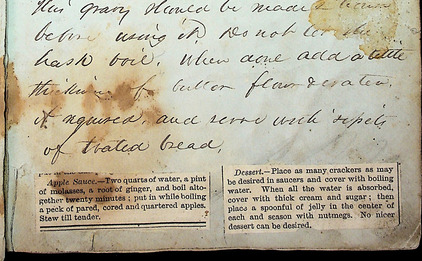 This gravy should be made
before using it. Do not let the
hash boil. When done add a little
thickening of butter flour & water
if required, and serve with sipets
of toasted bread.
Apple Sauce.—Two quarts of water, a pint
of molasses, a root of ginger, and boil alto-
gether twenty minutes; put in while boiling
a peck of pared, cored and quartered apples.
Stew till tender.
Dessert.—Place as many crackers as may
be desired in saucers and cover with boiling
water. When all the water is absorbed,
cover with thick cream and sugar; then
place a spoonful of jelly in the center of
each and season with nutmegs. No nicer
dessert can be desired.